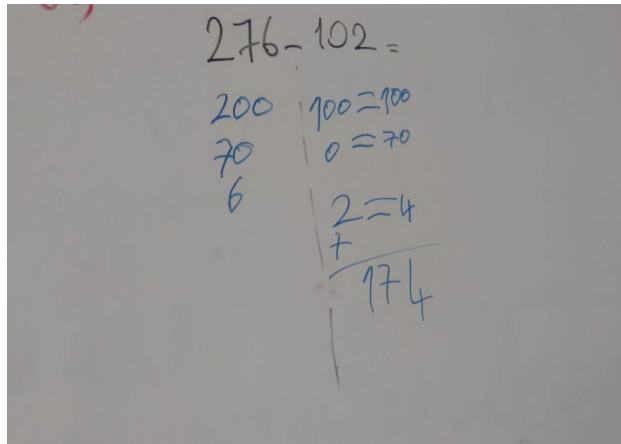 276-102=
200 100=100
70 0=70
6 2=4
+
174